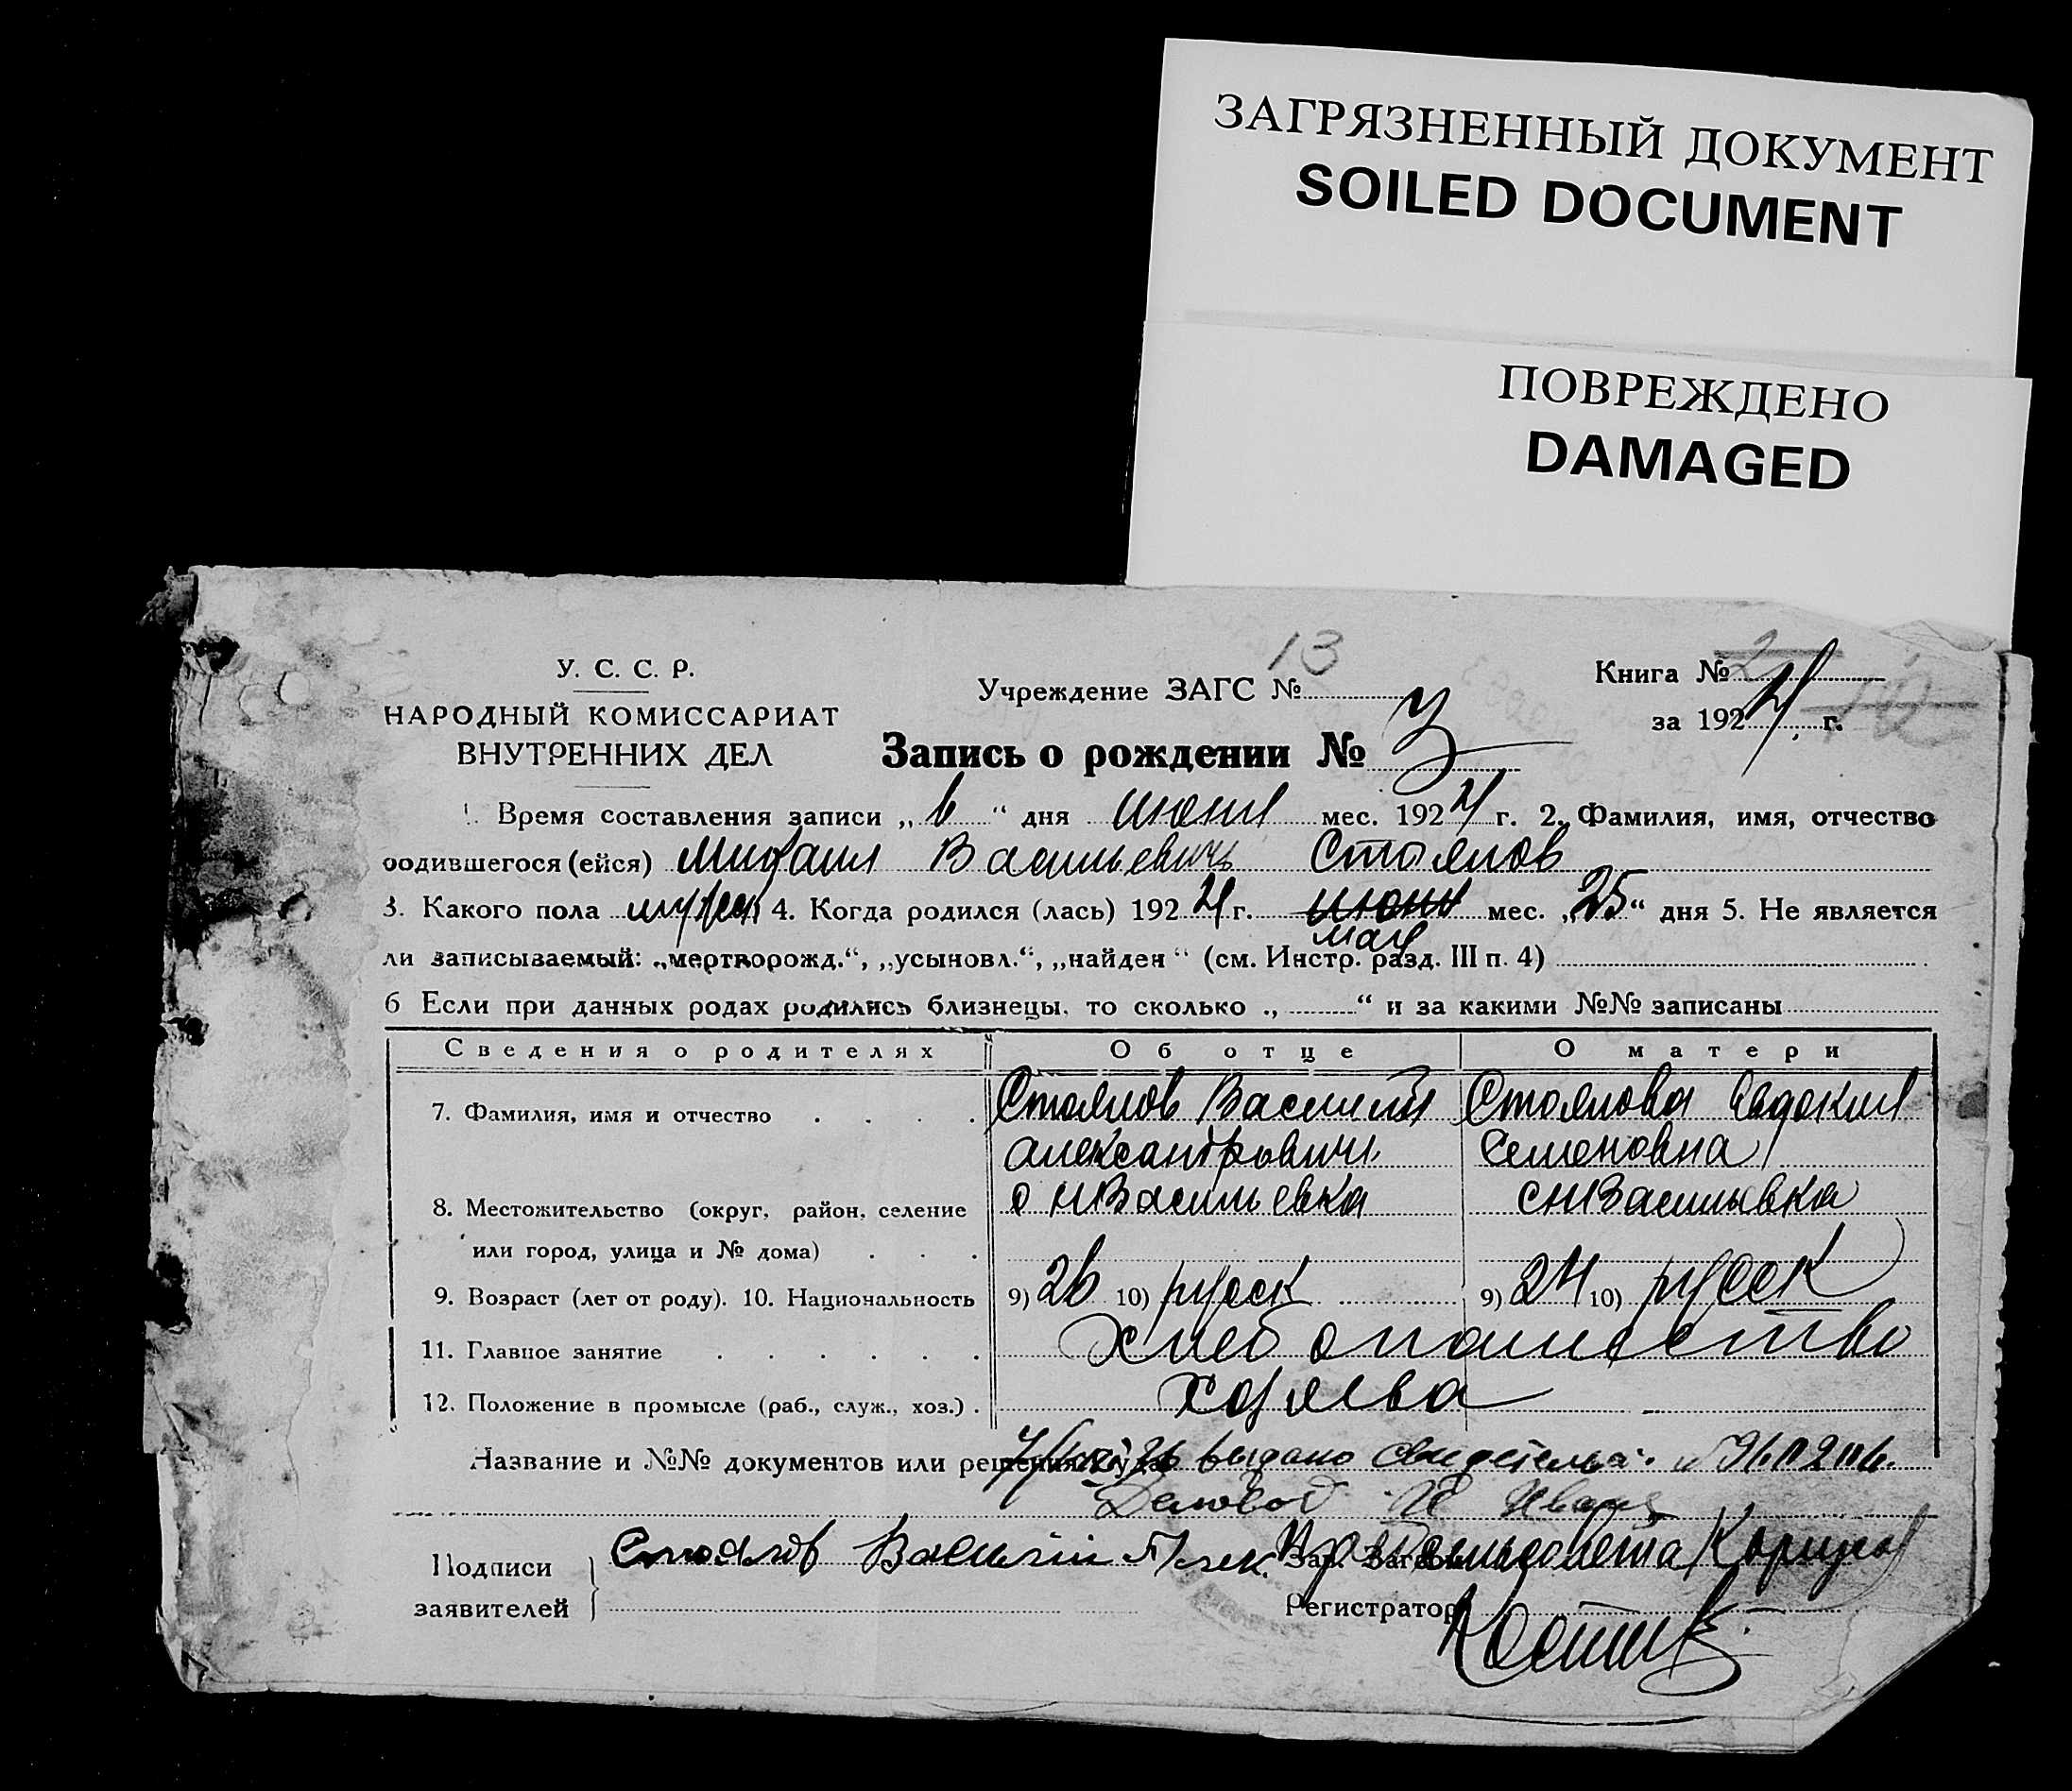 ЗАГРЯЗНЕННЫЙ ДОКУМЕНТ
SOILED DOCUMENT
ПОВРЕЖДЕНО
DAMAGED
У. С. С. Р.
НАРОДНЫЙ КОМИССАРИАТ
ВНУТРЕННИХ ДЕЛ
Учреждение ЗАГС № 13
Книга № 2
за 1924 г.
Запись о рождении № 3
1. Время составления записи „6“ дня июня мес. 1924 г. 2. Фамилия, имя, отчество
родившегося (ейся) Михаил Васильевичь Стоянов
3. Какого пола мужск 4. Когда родился (лась) 1924 г. июня мес. „25“ дня 5. Не является
мая
ли записываемый: „мертворожд.“, „усыновл.“, „найден“ (см. Инстр. разд. III п. 4)
6 Если при данных родах родились близнецы, то сколько „ “ и за какими №№ записаны
Сведения о родителях Об отце О матери
7. Фамилия, имя и отчество Стоянов Василий Стоянова Евдокия
Александровичь Семеновна
8. Местожительство (округ, район, селение с НВасильевка с НВасильевка
или город, улица и № дома)
9. Возраст (лет от роду). 10. Национальность 9) 26 10) русск 9) 24 10) русск
11. Главное занятие Хлебопашество
12. Положение в промысле (раб., служ., хоз.) хозяева
Название и №№ документов или решения суда выдано свидетельс.
Подписи Стоянов Василий Алек. Зав. Загсом
заявителей Регистратор